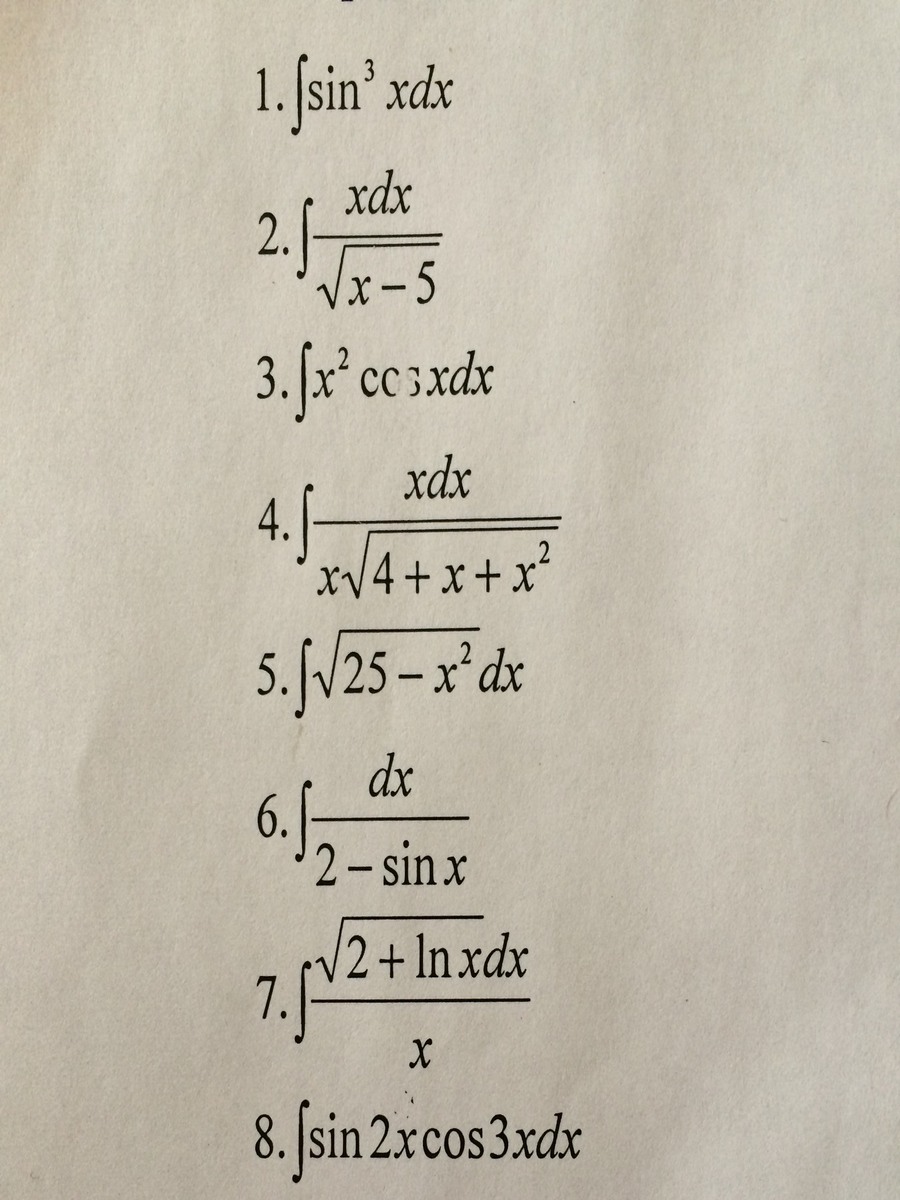 1. ∫sin³ xdx
2. ∫ xdx / √(x – 5)
3. ∫x² cos xdx
4. ∫ xdx / x√(4 + x + x²)
5. ∫√(25 – x²) dx
6. ∫ dx / (2 – sin x)
7. ∫ √(2 + ln x)dx / x
8. ∫sin 2x cos 3xdx